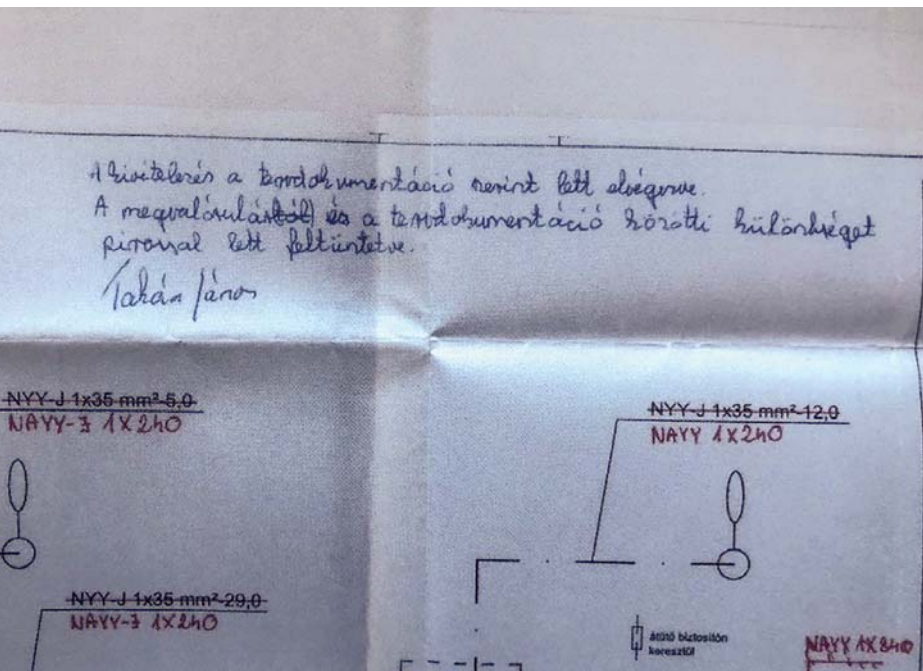 A kivitelezés a tervdokumentáció szerint lett elvégezve.
A megvalósulástól és a tervdokumentáció közötti különbséget
pirossal lett feltüntetve.
János
NYY-J 1x35 mm²-5,0
NAYY-J 1X240
NYY-J 1x35 mm²-12,0
NAYY 1X240
NYY-J 1x35 mm²-29,0
NAYY-J 1X240
átütő biztosítón
keresztül
NAYY 1X240